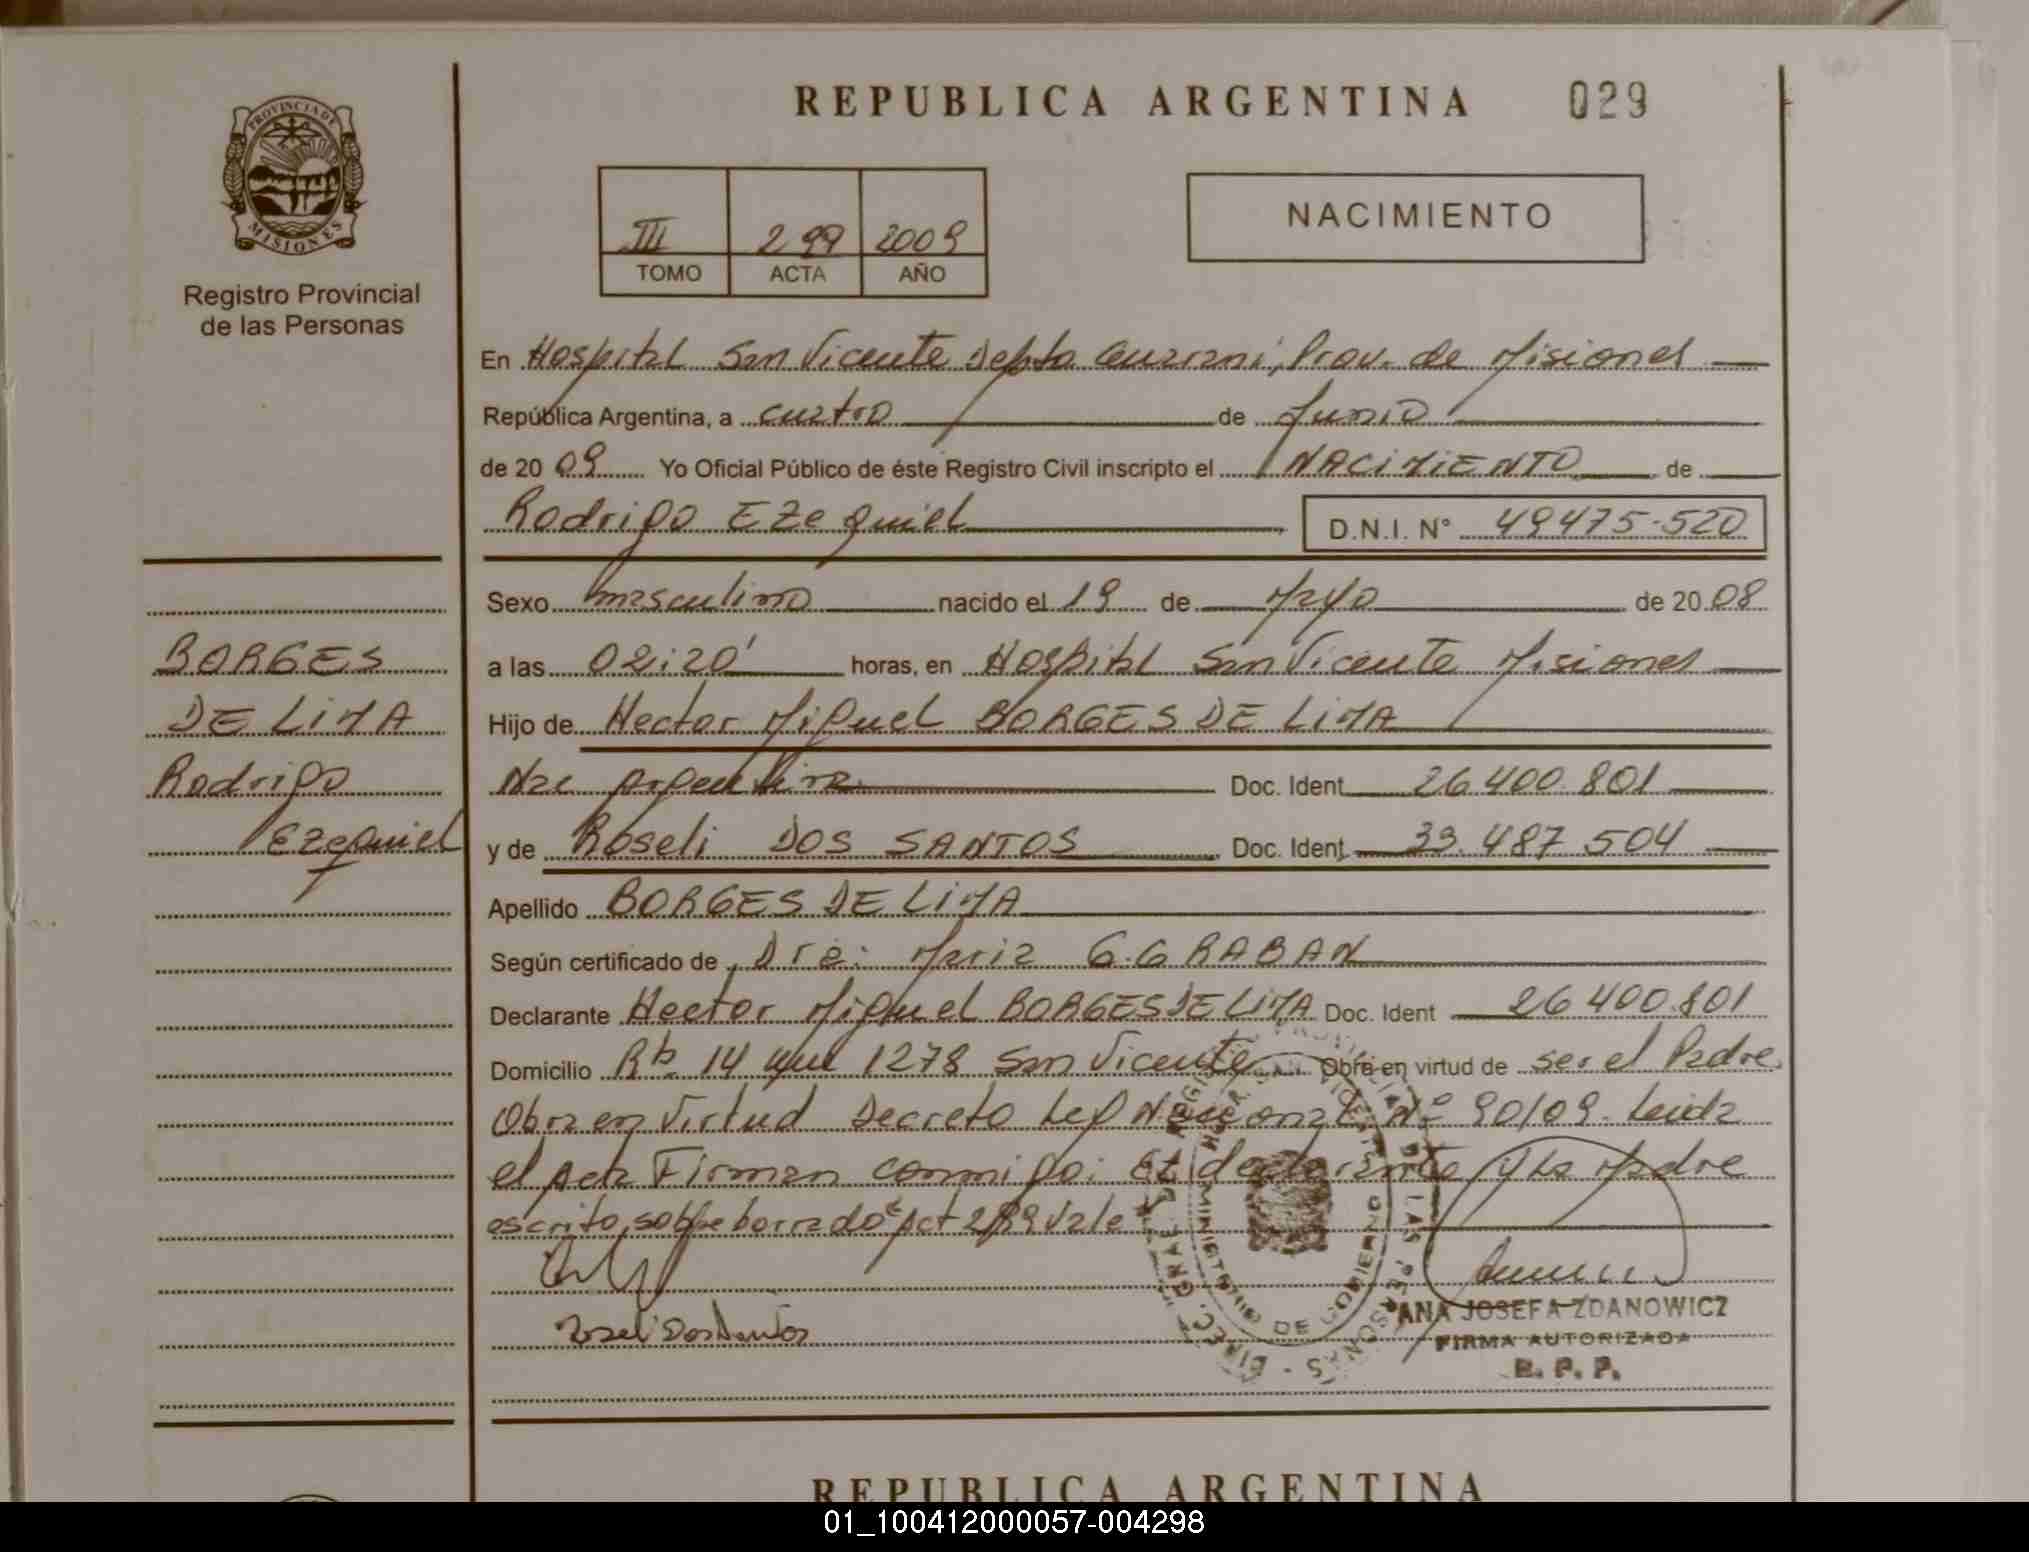 REPUBLICA ARGENTINA 029
PROVINCIA DE
MISIONES
Registro Provincial
de las Personas
III 299 2009
TOMO ACTA AÑO
NACIMIENTO
En Hospital San Vicente Depto Guarani, Prov. de Misiones
República Argentina, a cuatro de Junio
de 20 09 Yo Oficial Público de éste Registro Civil inscripto el NACIMIENTO de
Rodrigo Ezequiel D.N.I. N° 49475.520
Sexo masculino nacido el 19 de Mayo de 20 08
a las 02:20' horas, en Hospital San Vicente Misiones
Hijo de Hector Miguel BORGES DE LIMA
Nac Argentina Doc. Ident 26.400.801
y de Roseli DOS SANTOS Doc. Ident 33.487.504
Apellido BORGES DE LIMA
Según certificado de Dra: Maria G.G RABAN
Declarante Hector Miguel BORGES DE LIMA Doc. Ident 26.400.801
Domicilio 14 1278 San Vicente Obra en virtud de ser el Padre
Obra en Virtud Decreto Ley Nacional Nº 90/09. Leida
el Acta Firman conmigo: El declarante y La Madre
escrito sobre borrado Act 299 Vale
BORGES
DE LIMA
Rodrigo
Ezequiel
Roseli Dos Santos
MINISTERIO DE GOBIERNO
DE LAS PERSONAS
ANA JOSEFA ZDANOWICZ
FIRMA AUTORIZADA
R. P. P.
REPUBLICA ARGENTINA
01_100412000057-004298